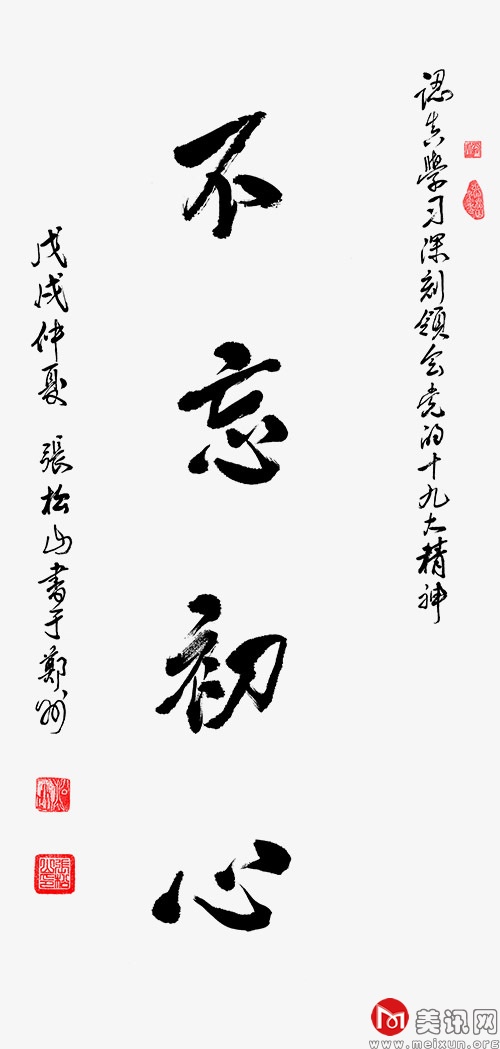 認真學习深刻領会党的十九大精神
不忘初心
戊戌仲夏 張松山书于鄭州
美讯网
www.meixun.org